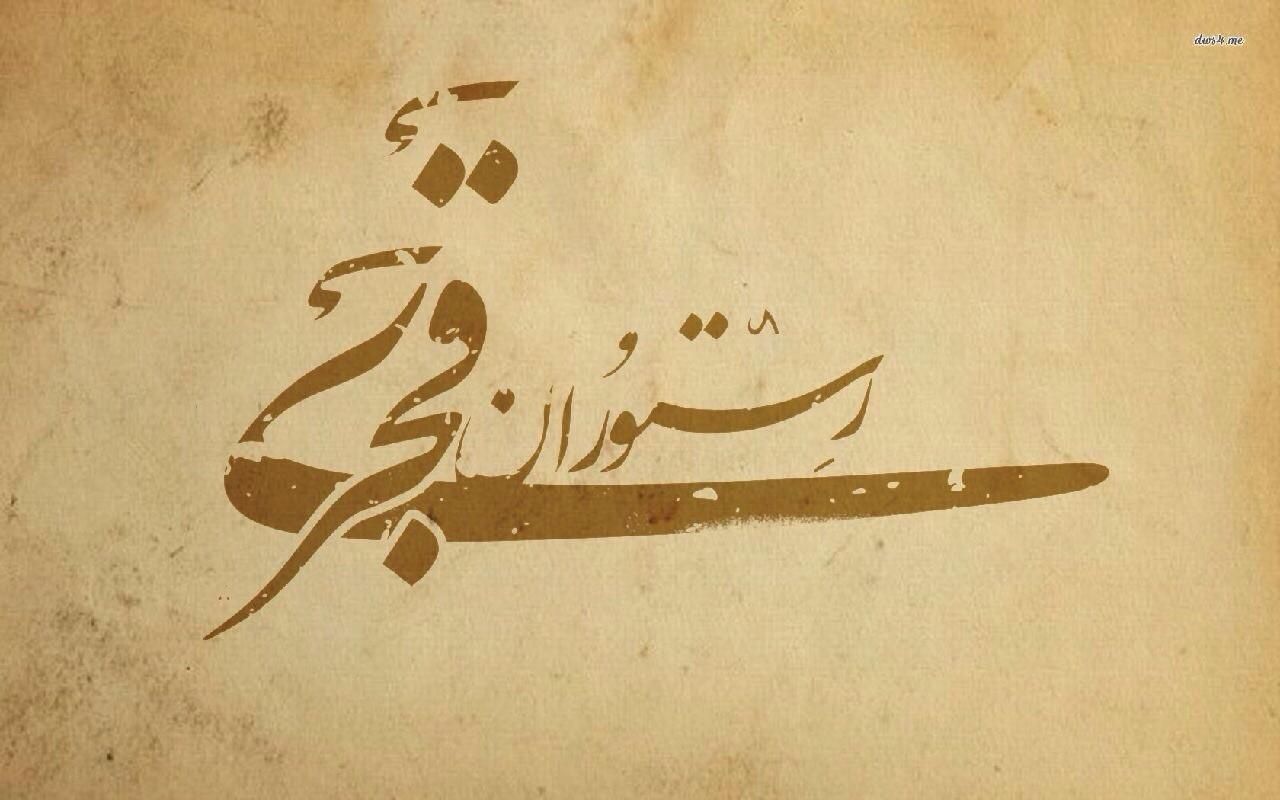 dws4.me
رستوران
قجری